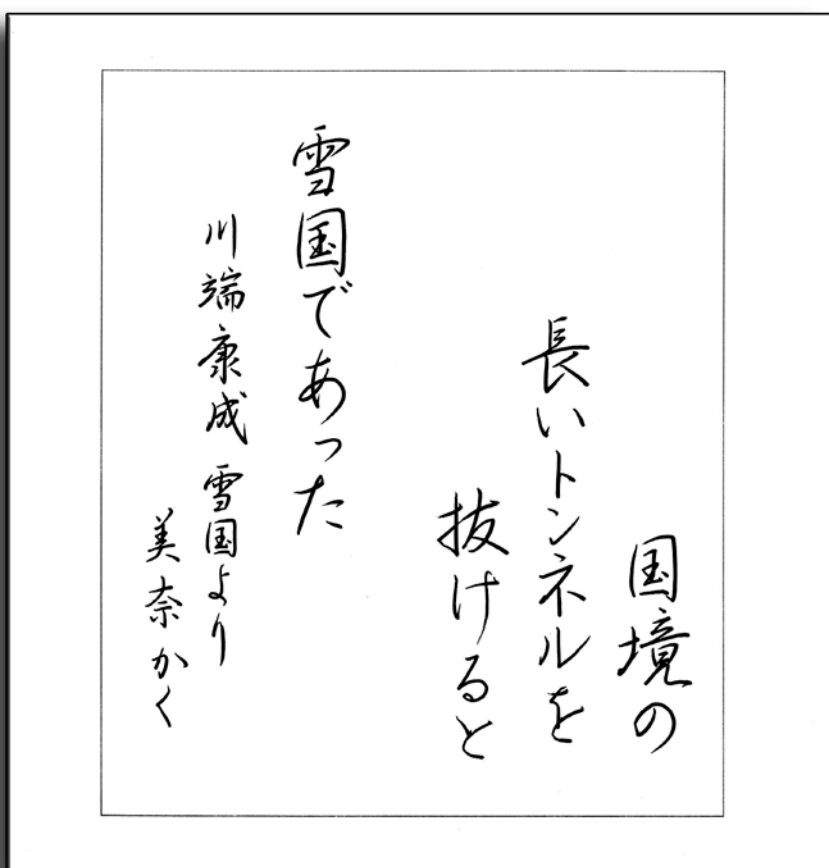 国境の
長いトンネルを
抜けると
雪国であった
川端康成 雪国より
美奈かく